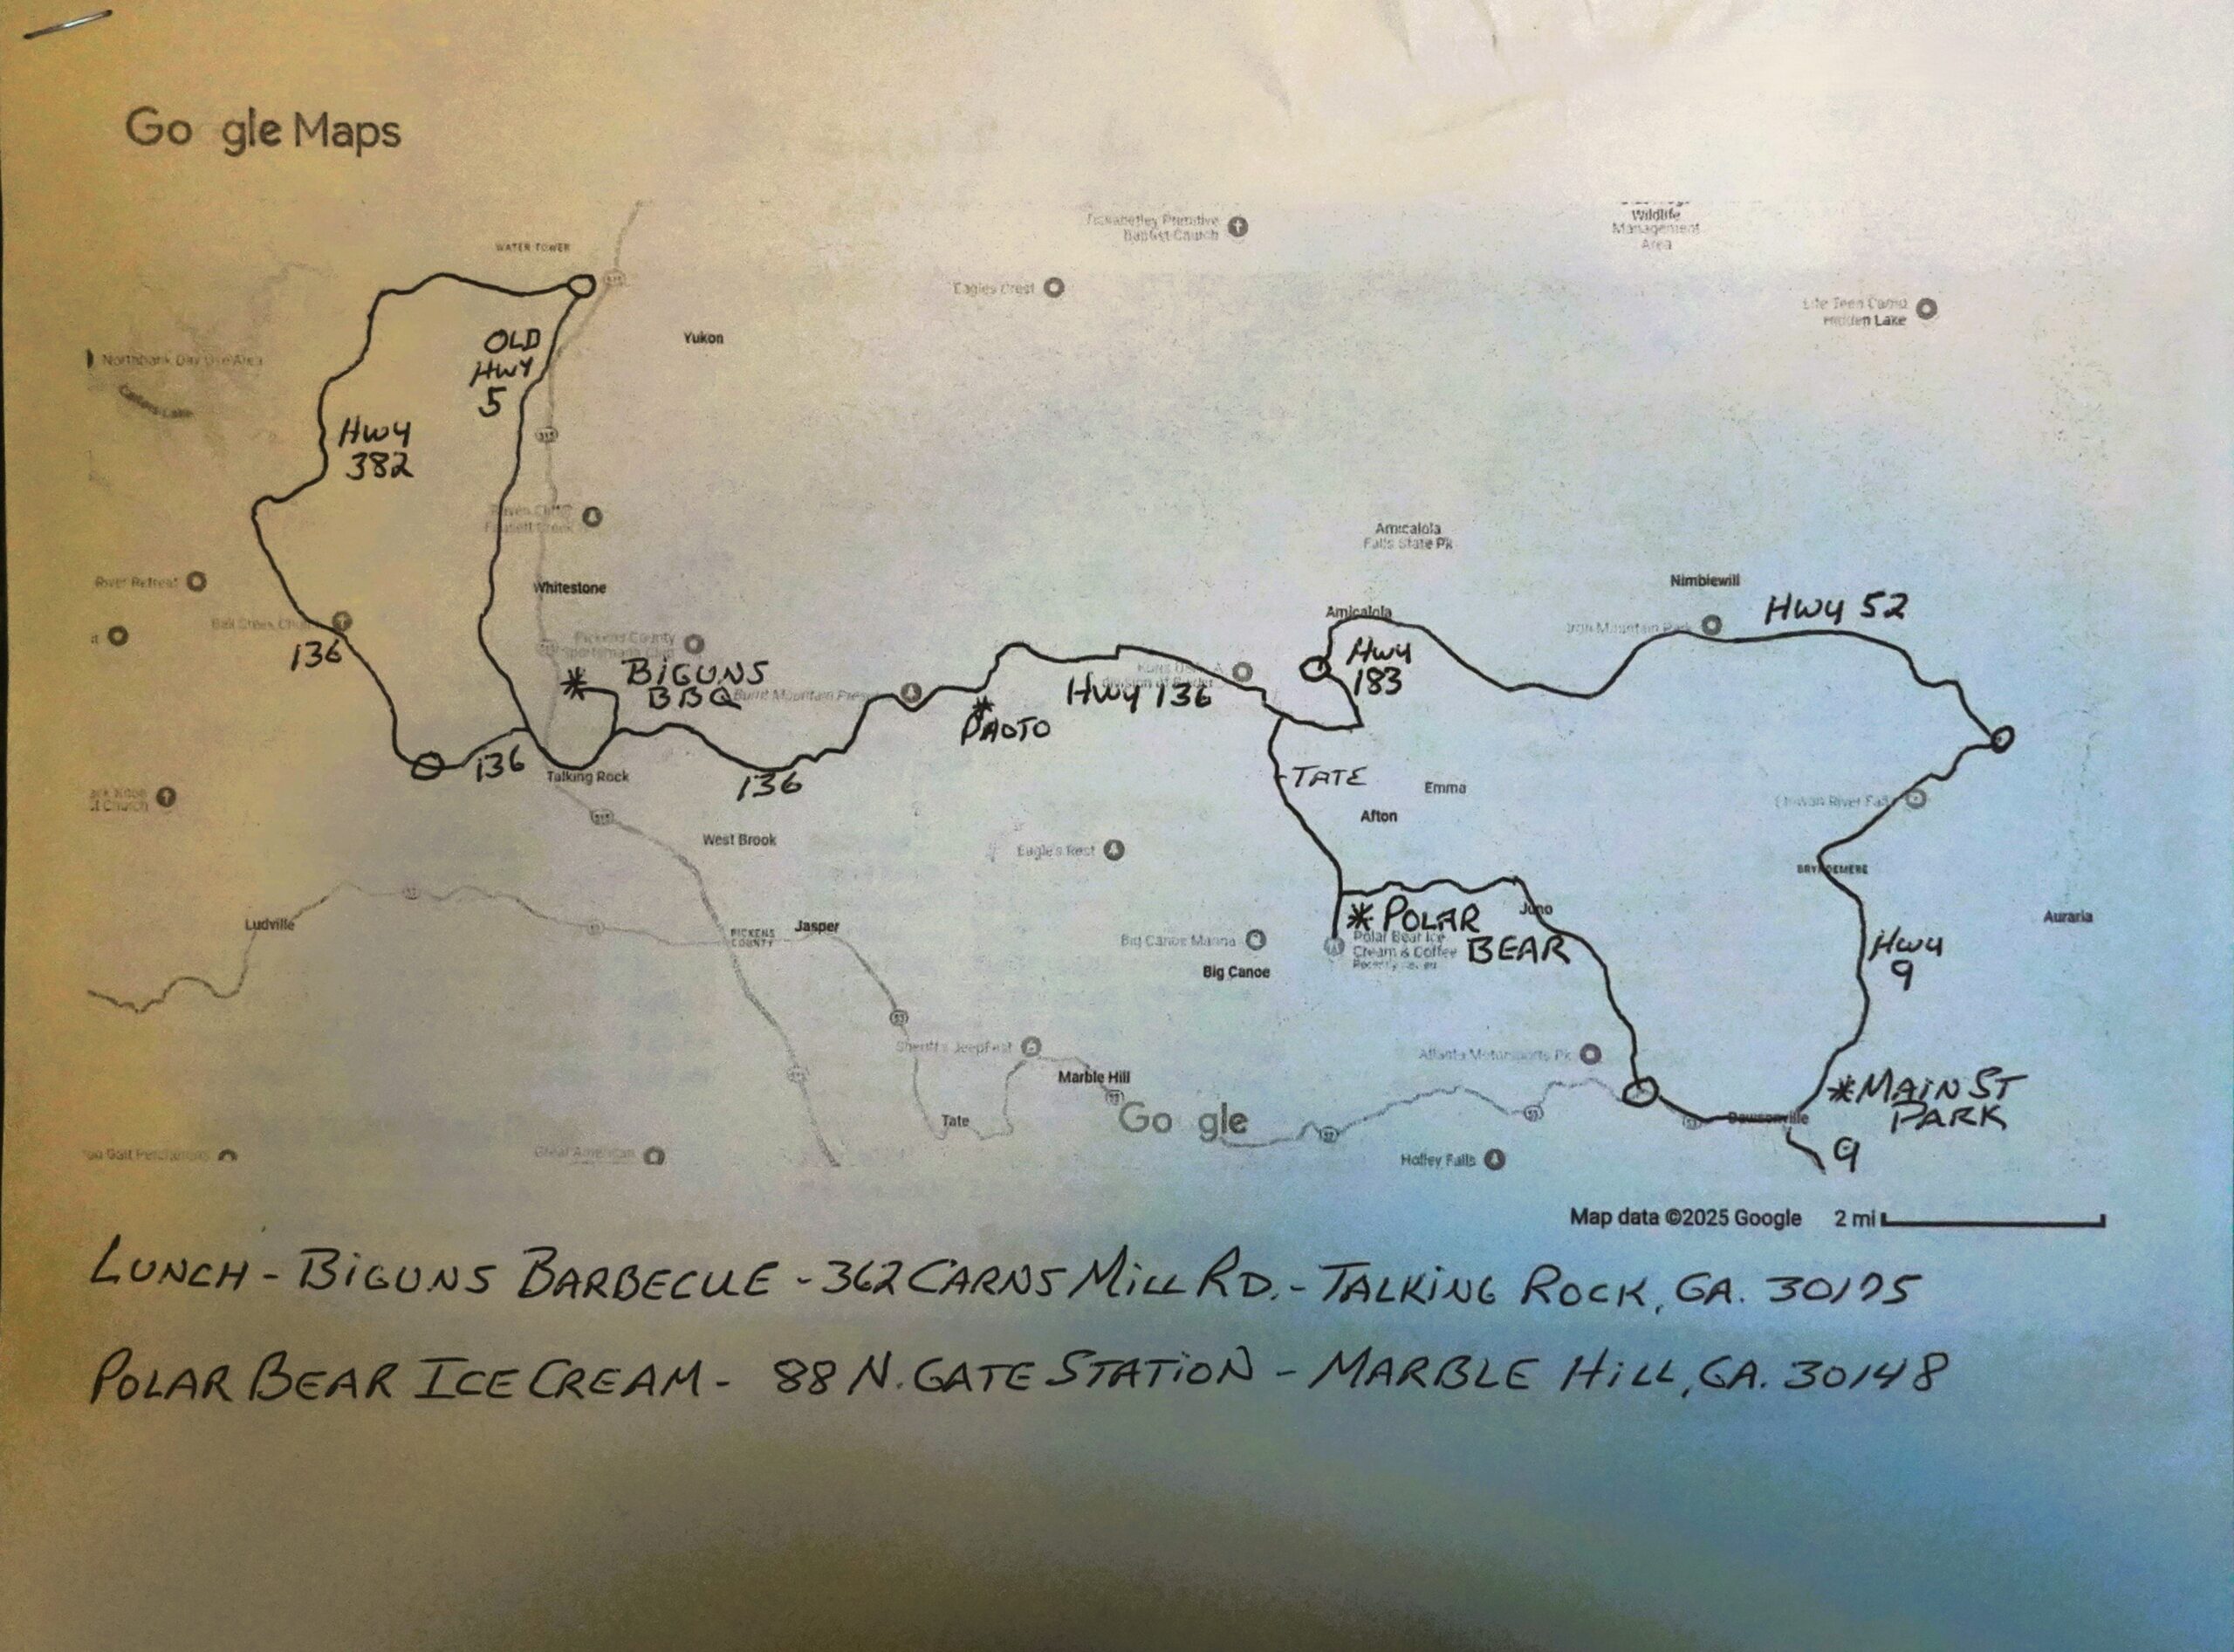 Go gle Maps
WATER TOWER
Wildlife
Management
Area
Baptist Church
Eagles Crest
Hidden Lake
Yukon
OLD
HWY
5
HWY
382
Amicalola
Falls State Pk
Nimblewill
Whitestone
River Retreat
HWY 52
Amicalola
Iron Mountain Park
136
Pickens County
BIGUNS
BBQ
Burnt Mountain Preserve
HWY
183
HWY 136
PHOTO
136
Talking Rock
136
TATE
Emma
Afton
West Brook
Eagle's Rest
Ludville
PICKENS
COUNTY
Jasper
Juno
POLAR
BEAR
Polar Bear Ice
Cream & Coffee
Big Canoe Marina
Big Canoe
Auraria
HWY
9
Sheriff's Jeepfest
Marble Hill
Atlanta Motorsports Pk
MAIN ST
PARK
Tate
Go gle
Dawsonville
9
Great American
Holley Falls
Map data ©2025 Google 2 mi
LUNCH - BIGUNS BARBECUE - 362 CARNS MILL RD. - TALKING ROCK, GA. 30175
POLAR BEAR ICE CREAM - 88 N. GATE STATION - MARBLE HILL, GA. 30148